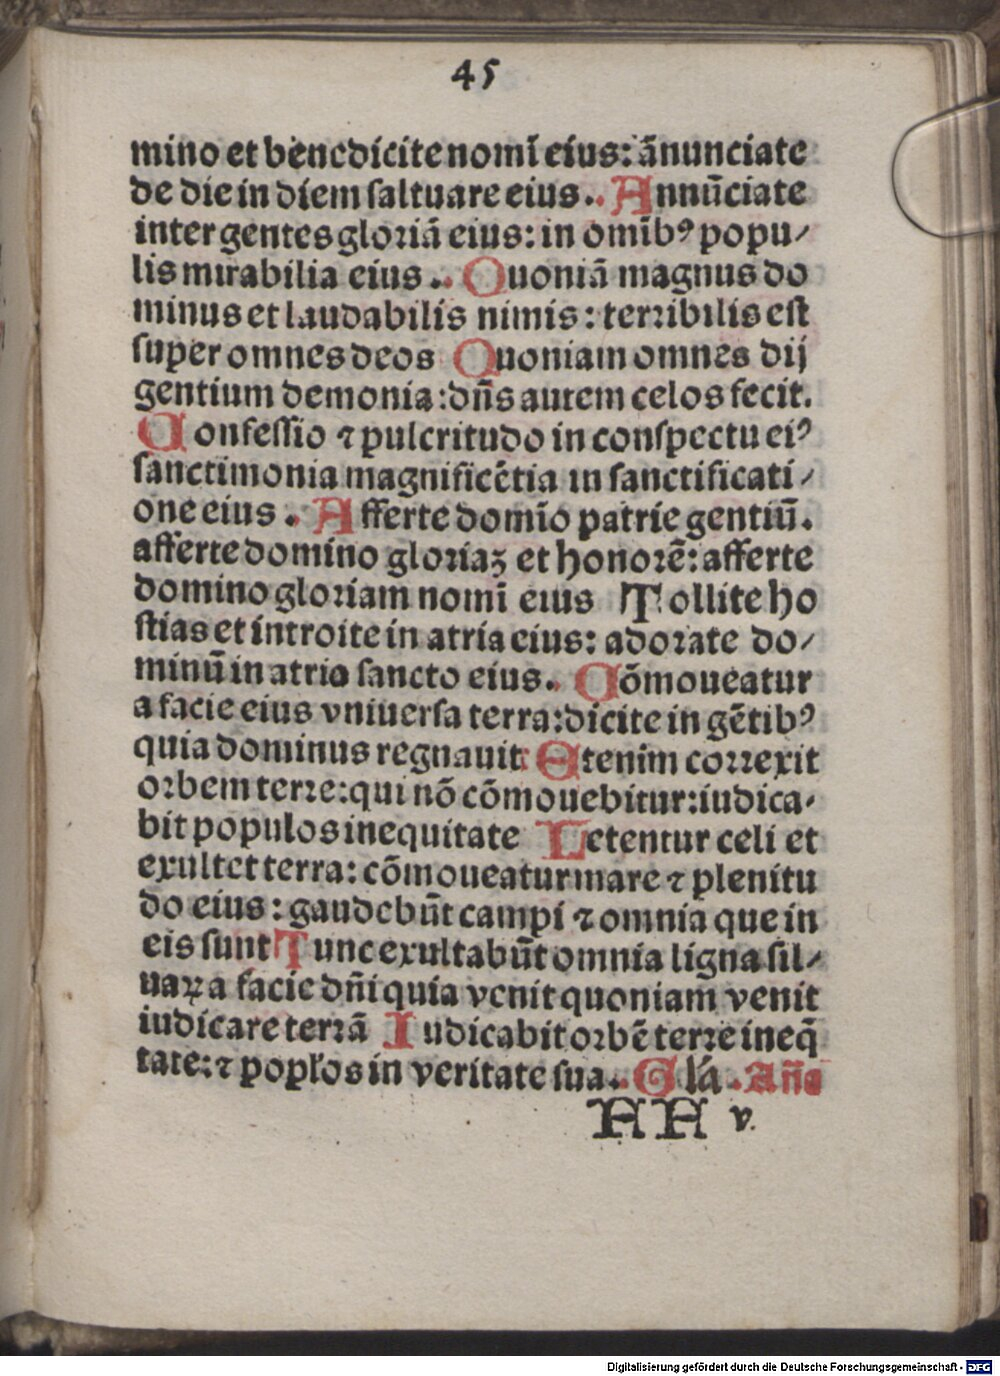 45
mino et benedicite nomī eius: ānunciate
de die in diem saltuare eius. Annūciate
inter gentes gloriā eius: in omībꝰ popu⸗
lis mirabilia eius. Quoniā magnus do
minus et laudabilis nimis: terribilis est
super omnes deos Quoniam omnes dij
gentium demonia: dn̄s autem celos fecit.
Confessio ⁊ pulcritudo in conspectu eiꝰ
sanctimonia magnificētia in sanctificati⸗
one eius. Afferte domīo patrie gentiū.
afferte domino gloriaꝫ et honorē: afferte
domino gloriam nomī eius Tollite ho
stias et introite in atria eius: adorate do⸗
minū in atrio sancto eius. Cōmoueatur
a facie eius vniuersa terra: dicite in gētibꝰ
quia dominus regnauit Etenim correxit
orbem terre: qui nō cōmouebitur: iudica⸗
bit populos in equitate Letentur celi et
exultet terra: cōmoueatur mare ⁊ plenitu
do eius: gaudebūt campi ⁊ omnia que in
eis sunt Tunc exultabūt omnia ligna sil⸗
uaꝝ a facie dn̄i quia venit quoniam venit
iudicare terrā Iudicabit orbē terre in eq̄
tate: ⁊ popl̓os in veritate sua. Gl̓a. An̄a
AA v.
Digitalisierung gefördert durch die Deutsche Forschungsgemeinschaft - DFG